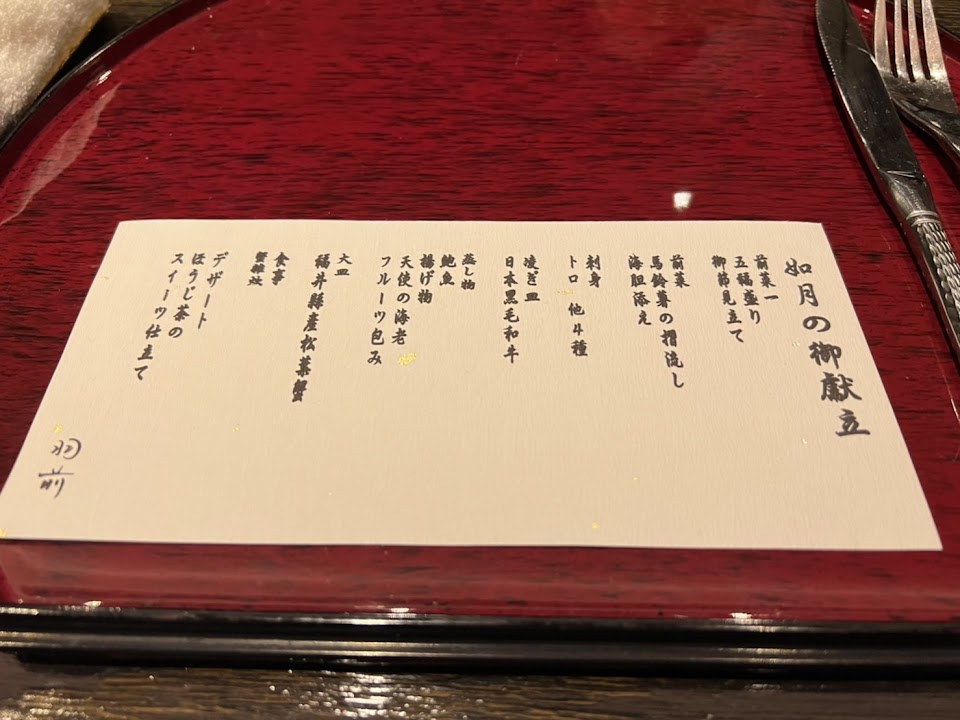 如月の御献立
前菜一
五福盛り
御節見立て
前菜
馬鈴薯の摺流し
海胆添え
刺身
トロ 他4種
凌ぎ皿
日本黒毛和牛
蒸し物
鮑魚
揚げ物
天使の海老
フルーツ包み
大皿
福井縣産松葉蟹
食事
蟹雑炊
デザート
ほうじ茶の
スイーツ仕立て
羽前